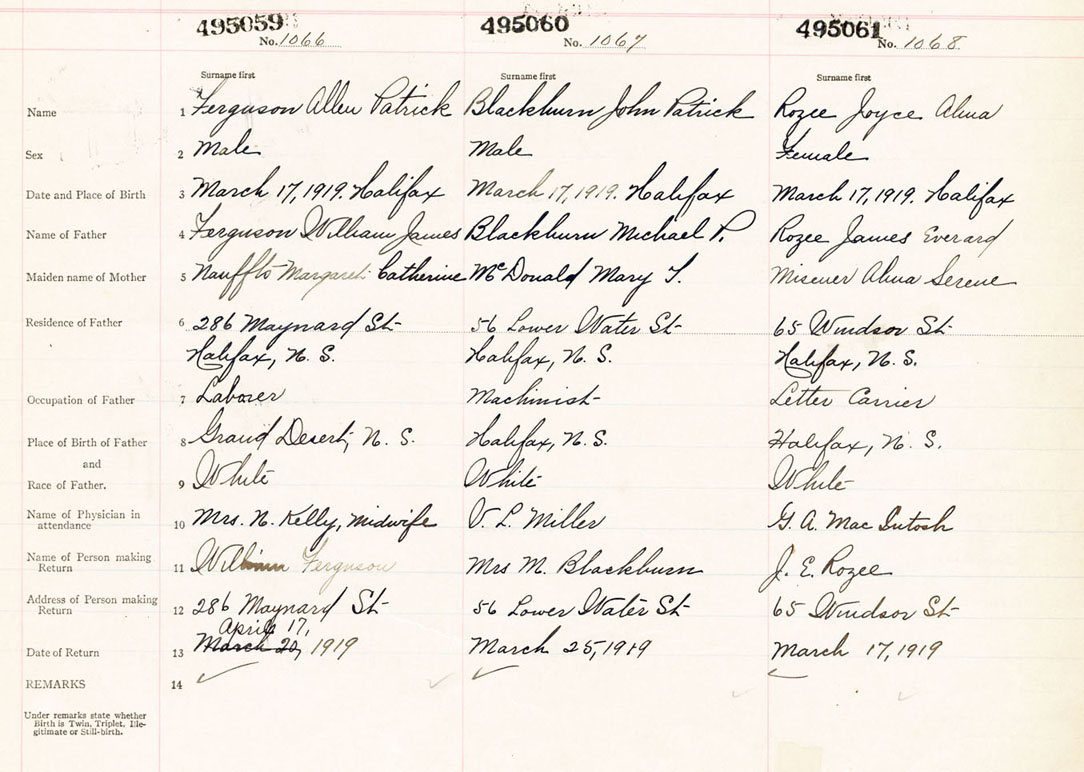 495059 495060 495061
No. 1066 No. 1067 No. 1068
Surname first Surname first Surname first
Name 1 Ferguson Allen Patrick Blackburn John Patrick Rozee Joyce Alma
Sex 2 Male Male Female
Date and Place of Birth 3 March 17, 1919. Halifax March 17, 1919. Halifax March 17, 1919. Halifax
Name of Father 4 Ferguson William James Blackburn Michael P. Rozee James Everard
Maiden name of Mother 5 Nauffts Margaret Catherine McDonald Mary T. Misener Alma Serene
Residence of Father 6 286 Maynard St 56 Lower Water St 65 Windsor St
Halifax, N. S. Halifax, N. S. Halifax, N. S.
Occupation of Father 7 Laborer Machinist Letter Carrier
Place of Birth of Father 8 Grand Desert, N. S. Halifax, N. S. Halifax, N. S.
and
Race of Father. 9 White White White
Name of Physician in
attendance 10 Mrs. N. Kelly, midwife V. L. Miller G. A. Mac Intosh
Name of Person making
Return 11 William Ferguson Mrs M. Blackburn J. E. Rozee
Address of Person making
Return 12 286 Maynard St 56 Lower Water St 65 Windsor St
April 17,
Date of Return 13 March 20, 1919 March 25, 1919 March 17, 1919
REMARKS 14
Under remarks state whether
Birth is Twin, Triplet, Ille-
gitimate or Still-birth.